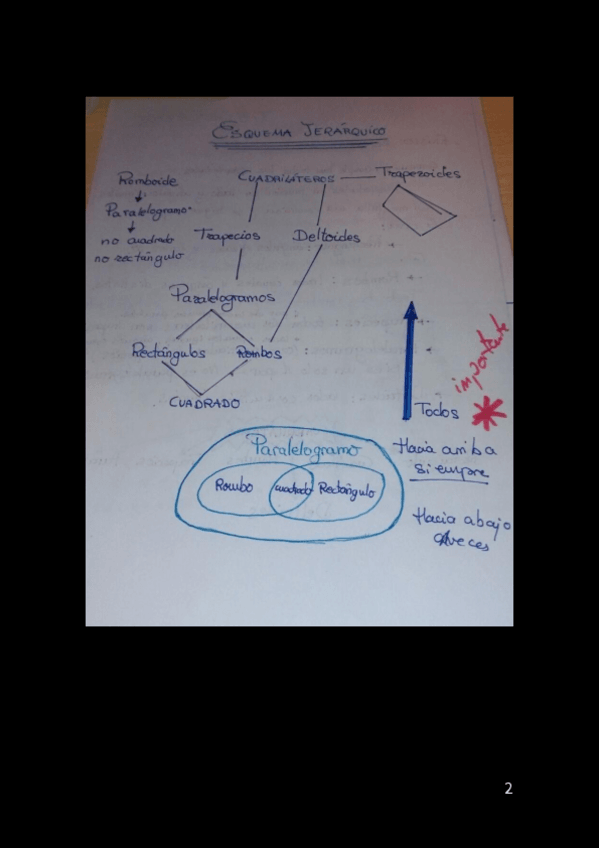 ESQUEMA JERÁRQUICO
Romboide
Paralelogramo
no cuadrado
no rectángulo
CUADRILÁTEROS
Trapezoides
Trapecios
Deltoides
Paralelogramos
Rectángulos
Rombos
CUADRADO
importante
Todos
Hacia arriba
siempre
Hacia abajo
aveces
Paralelogramo
Rombo
cuadrado
Rectángulo
2